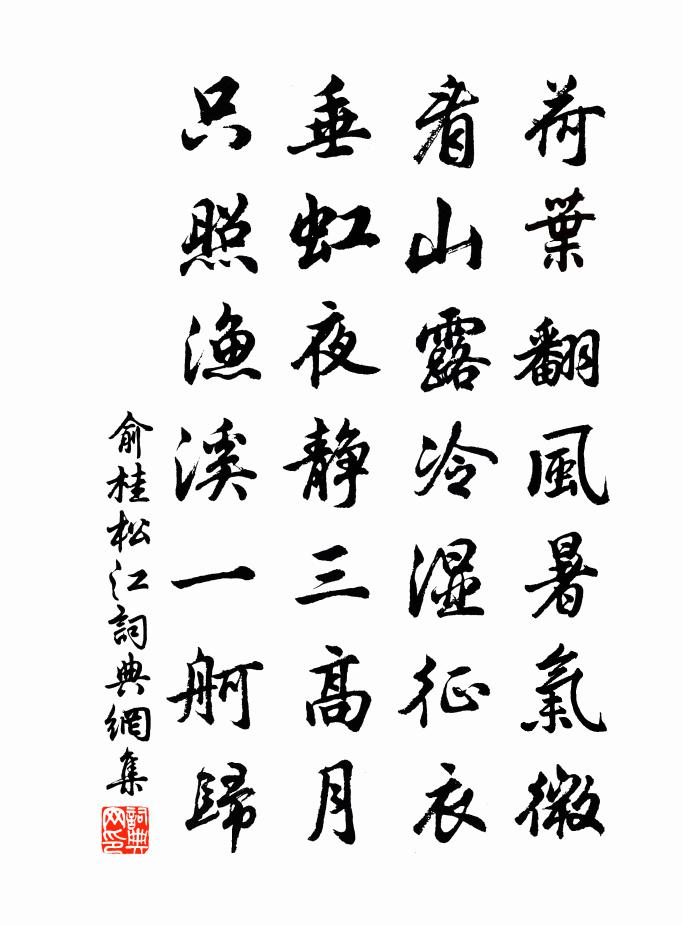 荷葉翻風暑氣微
看山露冷湿征衣
垂虹夜静三高月
只照漁溪一舸歸
俞桂松江詞典網集
詞典网印